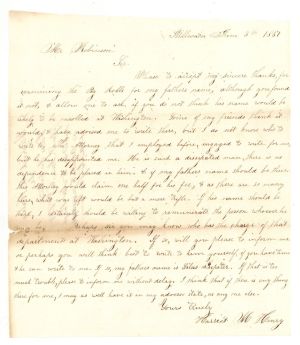 Stillwater 3th 1851
Mr. Robinson
Sir,
Please to accept my sincere thanks, for
examining the Rolls for my fathers name, although you found
it not, & allow me to ask, if you do not think his name would be
likely to be enrolled at Washington. Some of my friends think it
would, & have advised me to write there, but I do not know who to
write to, the Attorney that I employed before, engaged to write for me,
but he has disappointed me. He is such a dissipated man, there is no
dependence to be placed in him. & if my fathers name should be there
this Attorney would claim one half for his fee, & as there are so many
heirs, what was left would be but a mere trifle. If his name should be
there, I certainly should be willing to remunerate the person whoever he
may be. Perhaps, Sir you may know who has the charge of that
department at Washington. If so, will you please to inform me
or perhaps you will think best to write to him yourself, if you have time
& he can write to me. If so, my fathers name is Silas. If that is too
much trouble, please to inform me without delay. I think that if there is any thing
there for me, I may as well have it in my adverse state, as any one else.
Yours truly
Harriet